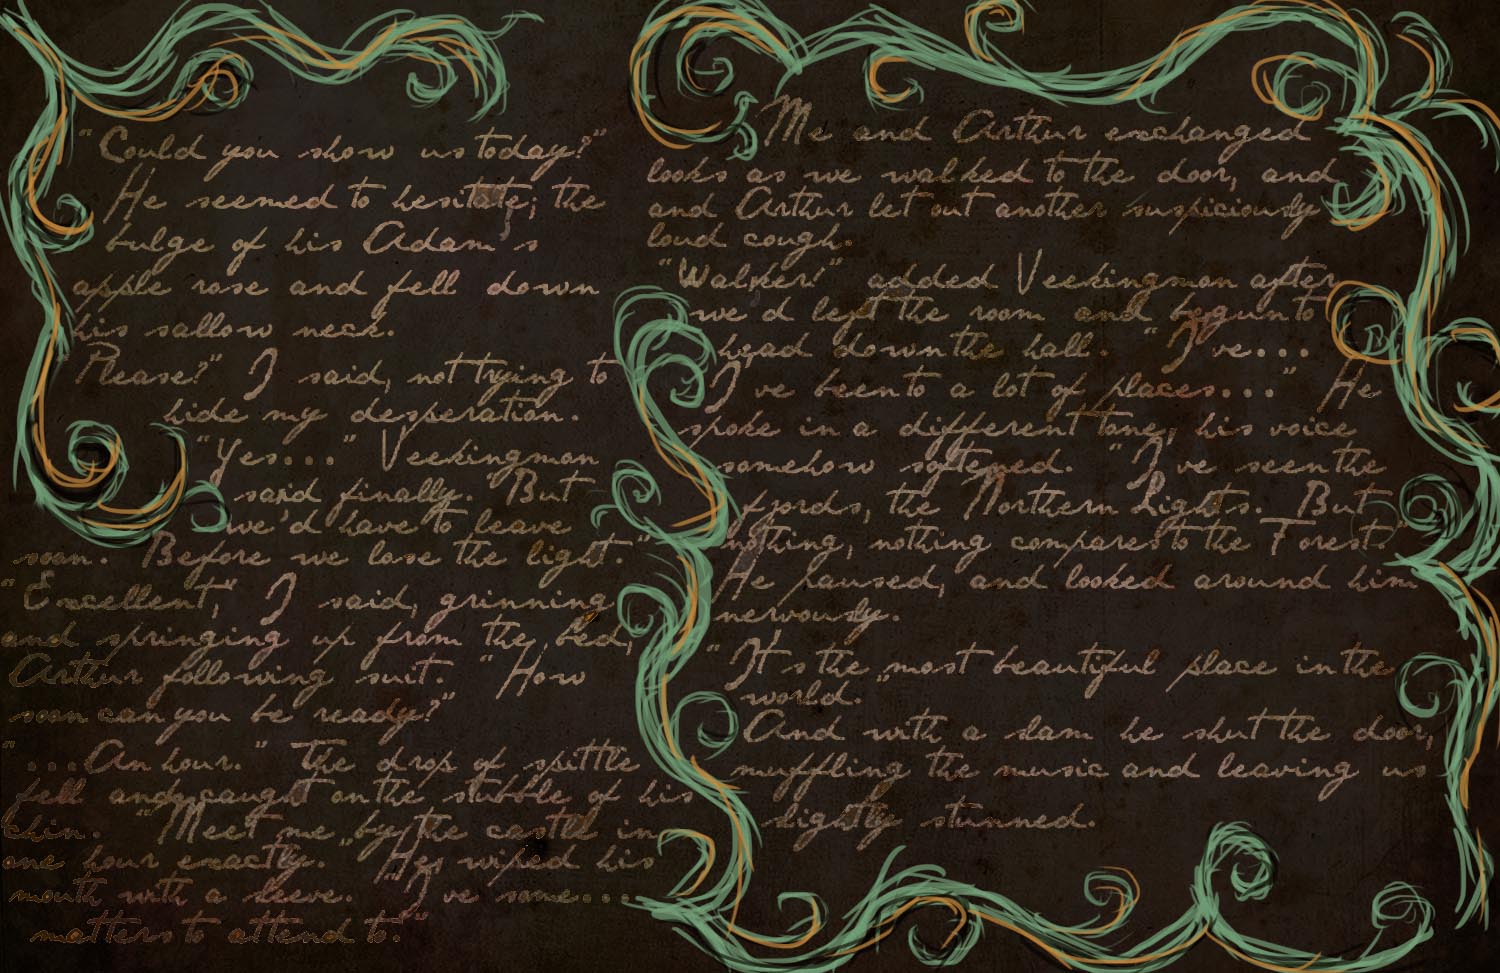 "Could you show us today?"
He seemed to hesitate; the
bulge of his Adam's
apple rose and fell down
his sallow neck.
"Please?" I said, not trying to
hide my desperation.
"Yes..." Veekingmon
said finally. "But
we'd have to leave
soon. Before we lose the light."
"Excellent," I said, grinning
and springing up from the bed,
Arthur following suit. "How
soon can you be ready?"
"...An hour." The drop of spittle
fell and caught on the stubble of his
chin. "Meet me by the castle in
one hour exactly." He wiped his
mouth with a sleeve. "I've some...
matters to attend to."
Me and Arthur exchanged
looks as we walked to the door, and
and Arthur let out another suspiciously
loud cough.
"Walker!" added Veekingmon after
we'd left the room and begun to
head down the hall. "I've...
I've been to a lot of places..." He
spoke in a different tone; his voice
somehow softened. "I've seen the
fjords, the Northern Lights. But
nothing, nothing compares to the Forest."
He paused, and looked around him
nervously.
"It's the most beautiful place in the
world."
And with a slam he shut the door,
muffling the music and leaving us
slightly stunned.